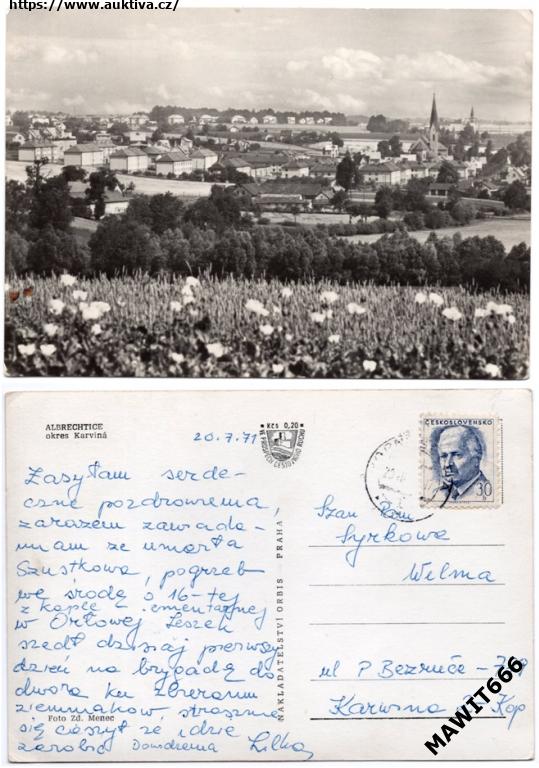 https://www.auktiva.cz/
ALBRECHTICE
okres Karviná
20.7.71
Kčs 0,20
VE PROSPĚCH CESTOVNÍHO RUCHU
ČESKOSLOVENSKO
30
Zasyłam serde-
czne pozdrowienia,
zarazem zawiada-
miam że umarła
Szustkowa, pogrzeb
we środę o 16-tej
z kaplicy cmentarnej
w Orłowej Leszek
szedł dzisiaj pierwszy
dzień na brygadę do
dwora ku zbieraniu
ziemniaków, strasznie
się cieszył że idzie
zarobić Dowidzenia Lilka
Foto Zd. Menec
NAKLADATELSTVÍ ORBIS - PRAHA
Szan Pani
Syrkowa
Wilma
ul P. Bezruče
Karwina
MAWIT666